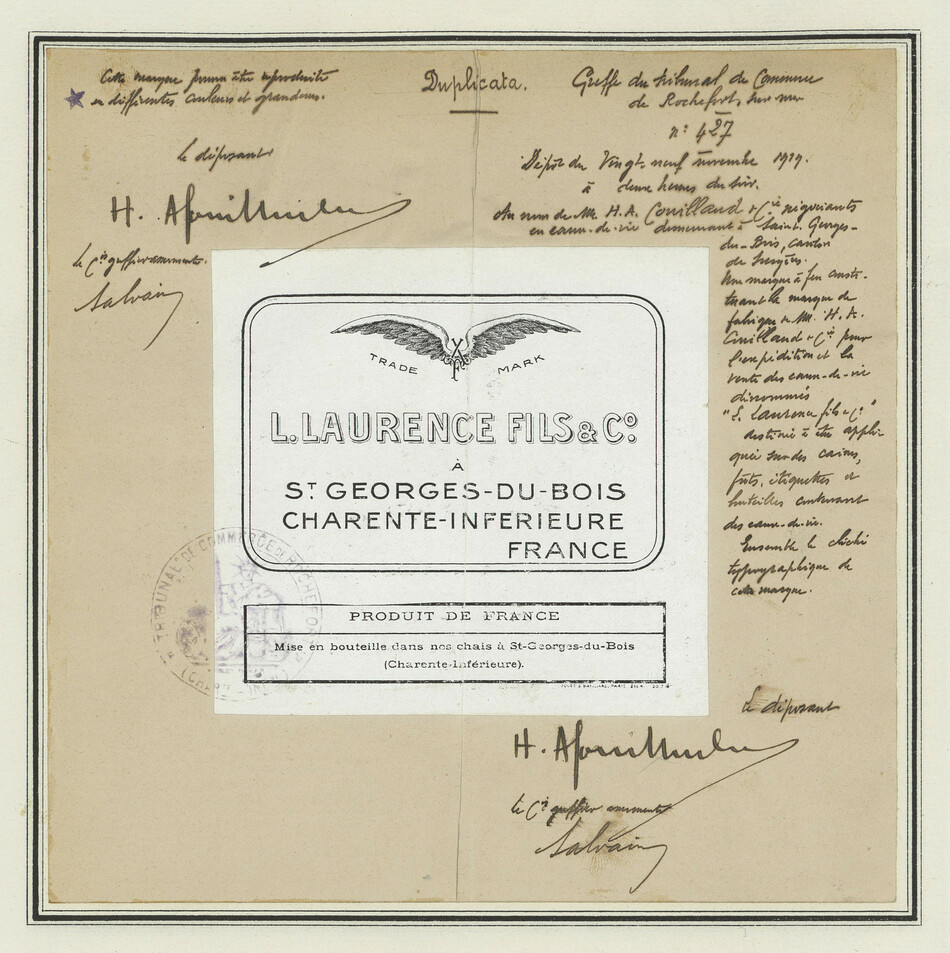 Cette marque pourra être reproduite
en différentes couleurs et grandeurs.
le déposant
le Cis greffier assermenté.
Salvain
Duplicata.
Greffe du tribunal de Commerce
de Rochefort sur mer
n: 427
Dépôt du Vingt neuf novembre 1919.
à deux heures du soir.
Au nom de MM. H. A. Couilland & Cie négociants
en eaux-de-vie demeurant à Saint-Georges-
du-Bois, canton
de Surgères.
Une marque à feu consti-
tuant la marque de
fabrique de MM. H. A.
Couilland & Cie pour
l'expédition et la
vente des eaux-de-vie
dénommés
"L. Laurence fils & Co"
destinée à être appli-
quée sur des caisses,
fûts, étiquettes et
bouteilles contenant
des eaux-de-vie.
Ensemble le cliché
typographique de
cette marque.
TRADE MARK
L. LAURENCE FILS & Co.
À
ST GEORGES-DU-BOIS
CHARENTE-INFERIEURE
FRANCE
PRODUIT DE FRANCE
Mise en bouteille dans nos chais à St-Georges-du-Bois
(Charente-Inférieure).
TRIBUNAL DE COMMERCE DE ROCHEFORT
le déposant
le Cis greffier assermenté
Salvain